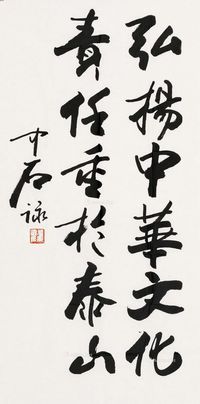 弘揚中華文化
責任重於泰山
中石詠